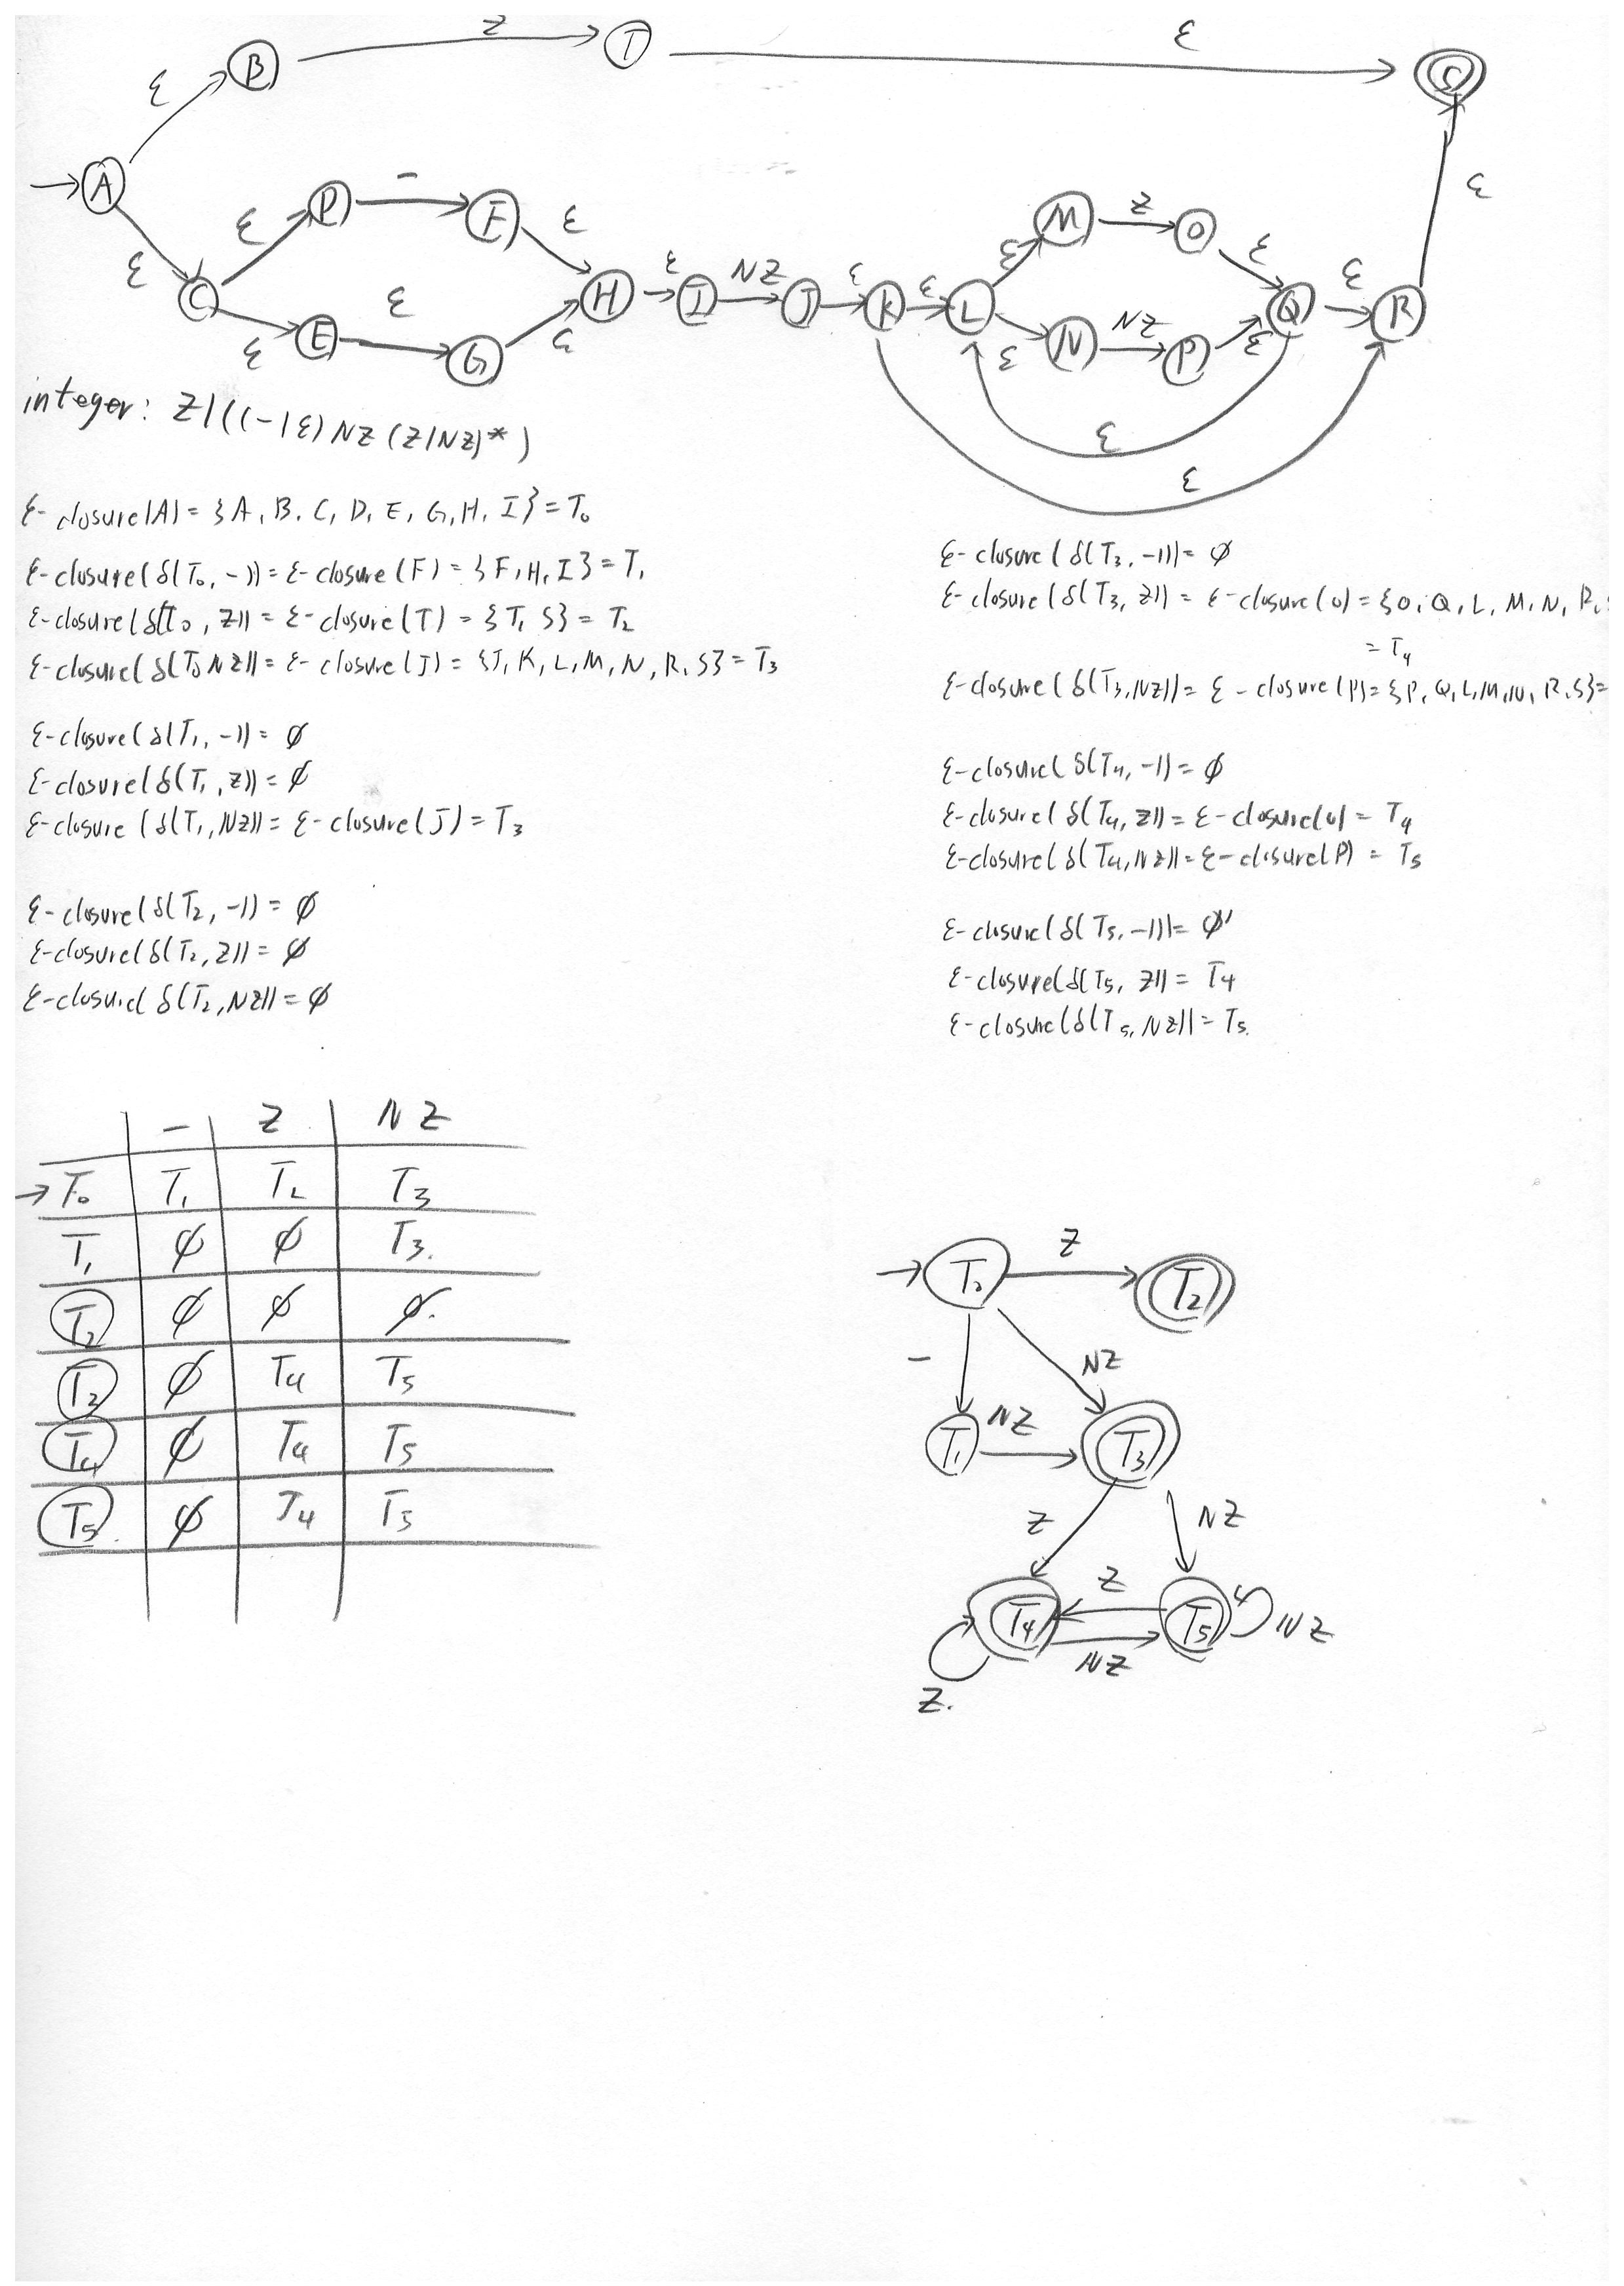 Z
ε
ε
B
T
S
A
-
ε
ε
ε
P
F
M
Z
O
ε
ε
C
ε
ε
E
G
ε
H
ε
I
NZ
J
ε
K
ε
L
ε
ε
N
NZ
P
ε
Q
ε
R
integer: Z|((-|ε)NZ(Z|NZ)*)
ε
ε
ε-closure(A) = {A, B, C, D, E, G, H, I} = T₀
ε-closure(δ(T₀, -)) = ε-closure(F) = {F, H, I} = T₁
ε-closure(δ(T₀, Z)) = ε-closure(T) = {T, S} = T₂
ε-closure(δ(T₀ NZ)) = ε-closure(J) = {J, K, L, M, N, R, S} = T₃
ε-closure(δ(T₁, -)) = ∅
ε-closure(δ(T₁, Z)) = ∅
ε-closure(δ(T₁, NZ)) = ε-closure(J) = T₃
ε-closure(δ(T₂, -)) = ∅
ε-closure(δ(T₂, Z)) = ∅
ε-closure(δ(T₂, NZ)) = ∅
ε-closure(δ(T₃, -)) = ∅
ε-closure(δ(T₃, Z)) = ε-closure(O) = {O, Q, L, M, N, R,
= T₄
ε-closure(δ(T₃, NZ)) = ε-closure(P) = {P, Q, L, M, N, R, S} =
ε-closure(δ(T₄, -)) = ∅
ε-closure(δ(T₄, Z)) = ε-closure(O) = T₄
ε-closure(δ(T₄, NZ)) = ε-closure(P) = T₅
ε-closure(δ(T₅, -)) = ∅
ε-closure(δ(T₅, Z)) = T₄
ε-closure(δ(T₅, NZ)) = T₅.
- Z NZ
→T₀ T₁ T₂ T₃
T₁ ∅ ∅ T₃.
T₂ ∅ ∅ ∅.
T₂ ∅ T₄ T₅
T₄ ∅ T₄ T₅
T₅ ∅ T₄ T₅
T₀
Z
T₂
-
NZ
T₁
NZ
T₃
Z
NZ
T₄
Z
NZ
T₅
NZ
Z.